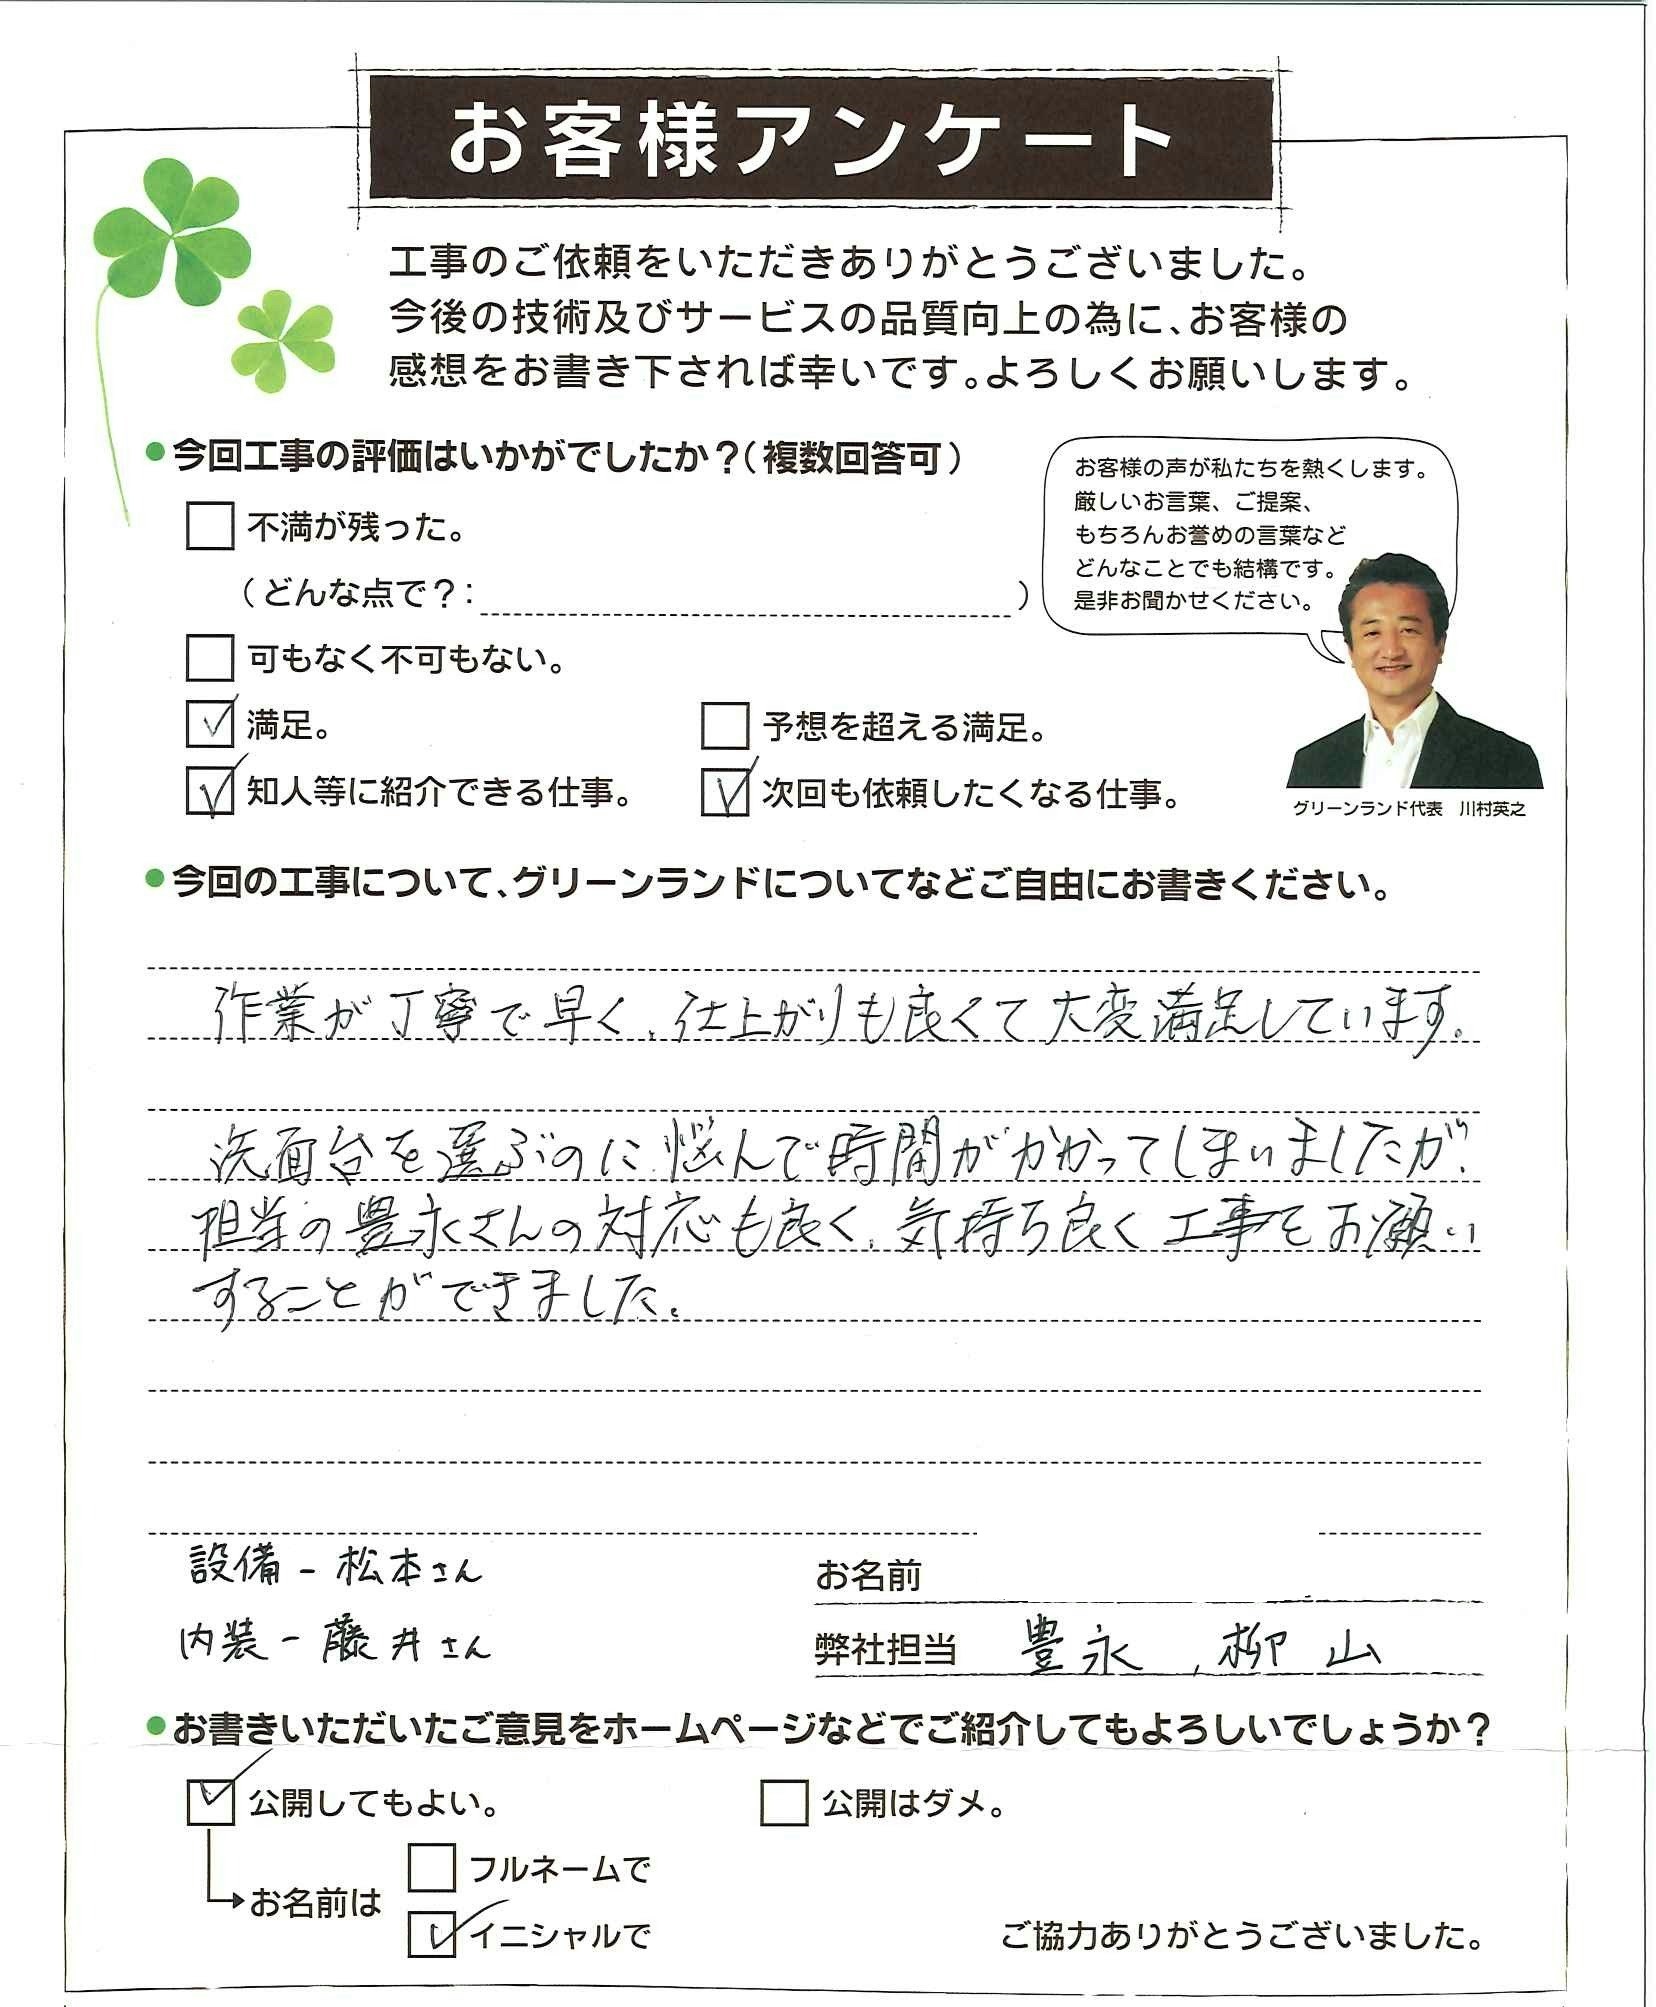 お客様アンケート
工事のご依頼をいただきありがとうございました。
今後の技術及びサービスの品質向上の為に、お客様の
感想をお書き下されば幸いです。よろしくお願いします。
●今回工事の評価はいかがでしたか？（複数回答可）
不満が残った。
（どんな点で？：）
可もなく不可もない。
満足。
予想を超える満足。
知人等に紹介できる仕事。
次回も依頼したくなる仕事。
お客様の声が私たちを熱くします。
厳しいお言葉、ご提案、
もちろんお誉めの言葉など
どんなことでも結構です。
是非お聞かせください。
グリーンランド代表　川村英之
●今回の工事について、グリーンランドについてなどご自由にお書きください。
作業が丁寧で早く、仕上がりも良くて大変満足しています。
洗面台を選ぶのに悩んで時間がかかってしまいましたが、
担当の豊永さんの対応も良く、気持ち良く工事をお願い
することができました。
設備－松本さん
内装－藤井さん
お名前
弊社担当　豊永、柳山
●お書きいただいたご意見をホームページなどでご紹介してもよろしいでしょうか？
公開してもよい。
公開はダメ。
お名前は
フルネームで
イニシャルで
ご協力ありがとうございました。